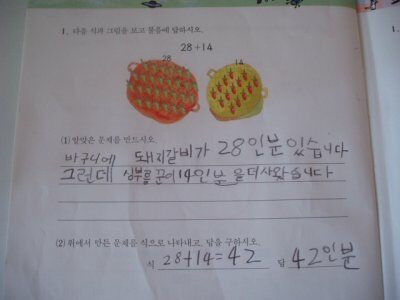 1. 다음 식과 그림을 보고 물음에 답하시오.
28+14
28 14
(1) 알맞은 문제를 만드시오.
바구니에 돼지갈비가 28인분 있습니다
그런데 14인분을 더 사왔습니다
(2) 위에서 만든 문제를 식으로 나타내고, 답을 구하시오.
식 28+14=42 답 42인분
1.